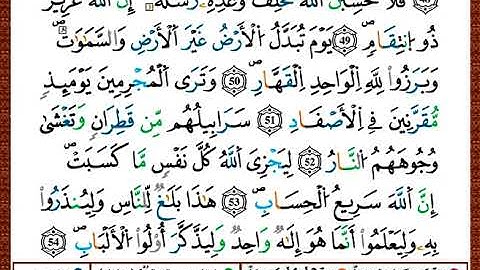 فَلَا تَحْسَبَنَّ اللَّهَ مُخْلِفَ وَعْدِهِۦ رُسُلَهُۥٓۖ إِنَّ اللَّهَ عَزِيزٌ
ذُو اَنتِقَامٖۖ ٤٩ يَوْمَ تُبَدَّلُ اُلْأَرْضُ غَيْرَ اَلْأَرْضِ وَالسَّمَٰوَٰتُۖ
وَبَرَزُواْ لِلهِ اِلْوَاحِدِ اِلْقَهَّارِۖ ٥٠ وَتَرَى اَلْمُجْرِمِينَ يَوْمَئِذٖ
مُّقَرَّنِينَ فِے اِلْأَصْفَادِ ٥١ سَرَابِيلُهُم مِّن قَطِرَانٖ وَتَغْشَىٰ
وُجُوهَهُمُ اُلنَّارُ ٥٢ لِيَجْزِيَ اَللَّهُ كُلَّ نَفْسٖ مَّا كَسَبَتْۖ
إِنَّ اَللَّهَ سَرِيعُ اُلْحِسَابِۖ ٥٣ هَٰذَا بَلَٰغٞ لِّلنَّاسِ وَلِيُنذَرُواْ
بِهِۦ وَلِيَعْلَمُواْ أَنَّمَا هُوَ إِلَٰهٞ وَٰحِدٞ وَلِيَذَّكَّرَ أُوْلُواْ اُلْأَلْبَٰبِۖ ٥٤